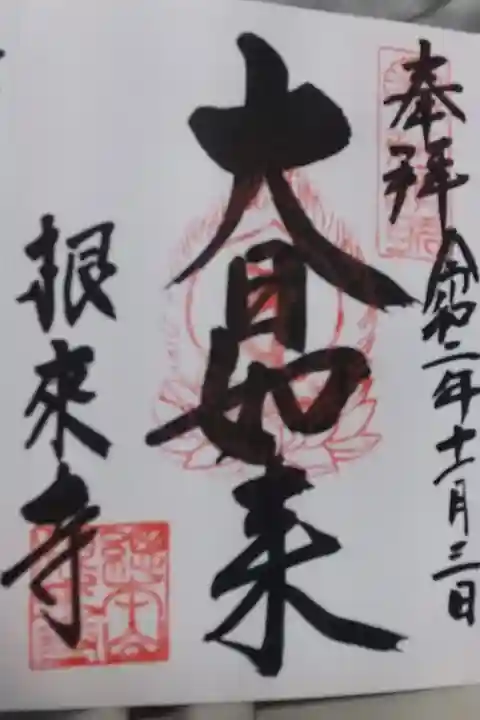 奉拜
令和二年十一月三日
大日如来
根來寺